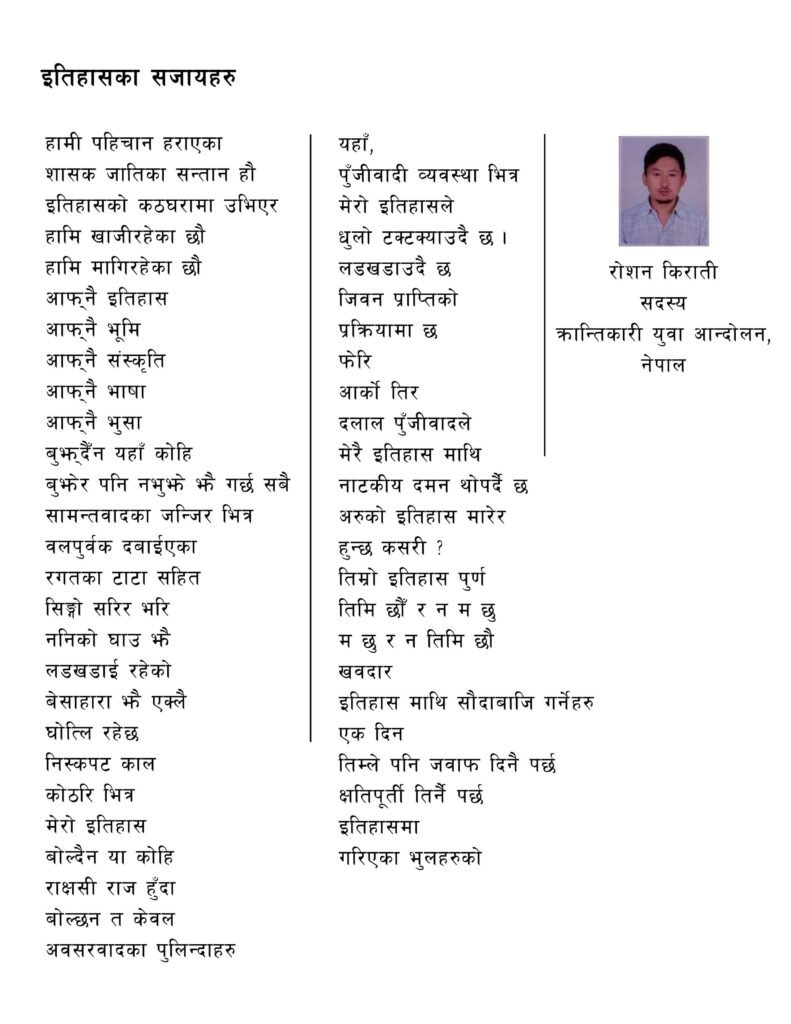 इतिहासका सजायहरु
हामी पहिचान हराएका
शासक जातिका सन्तान हौ
इतिहासको कठघरामा उभिएर
हामि खाजीरहेका छौ
हामि मागिरहेका छौ
आफ्‌नै इतिहास
आफ्‌नै भूमि
आफ्‌नै संस्कृति
आफ्‌नै भाषा
आफ्‌नै भुसा
बुझ्दैँन यहाँ कोहि
बुझेर पनि नभुझे झै गर्छ सबै
सामन्तवादका जन्जिर भित्र
वलपुर्वक दबाईएका
रगतका टाटा सहित
सिङ्गो सरिर भरि
ननिको घाउ झै
लडखडाई रहेको
बेसाहारा झै एक्लै
घोत्लि रहेछ
निस्कपट काल
कोठरि भित्र
मेरो इतिहास
बोल्दैन या कोहि
राक्षसी राज हुँदा
बोल्छन त केवल
अवसरवादका पुलिन्दाहरु
यहाँ,
पुँजीवादी व्यवस्था भित्र
मेरो इतिहासले
धुलो टक्टक्याउदै छ ।
लडखडाउदै छ
जिवन प्राप्तिको
प्रक्रियामा छ
फेरि
आर्को तिर
दलाल पुँजीवादले
मेरै इतिहास माथि
नाटकीय दमन थोपर्दै छ
अरुको इतिहास मारेर
हुन्छ कसरी ?
तिम्रो इतिहास पुर्ण
तिमि छौँ र न म छु
म छु र न तिमि छौ
खवदार
इतिहास माथि सौदाबाजि गर्नेहरु
एक दिन
तिम्ले पनि जवाफ दिनै पर्छ
क्षतिपूर्ती तिर्नै पर्छ
इतिहासमा
गरिएका भुलहरुको
रोशन किराती
सदस्य
क्रान्तिकारी युवा आन्दोलन,
नेपाल